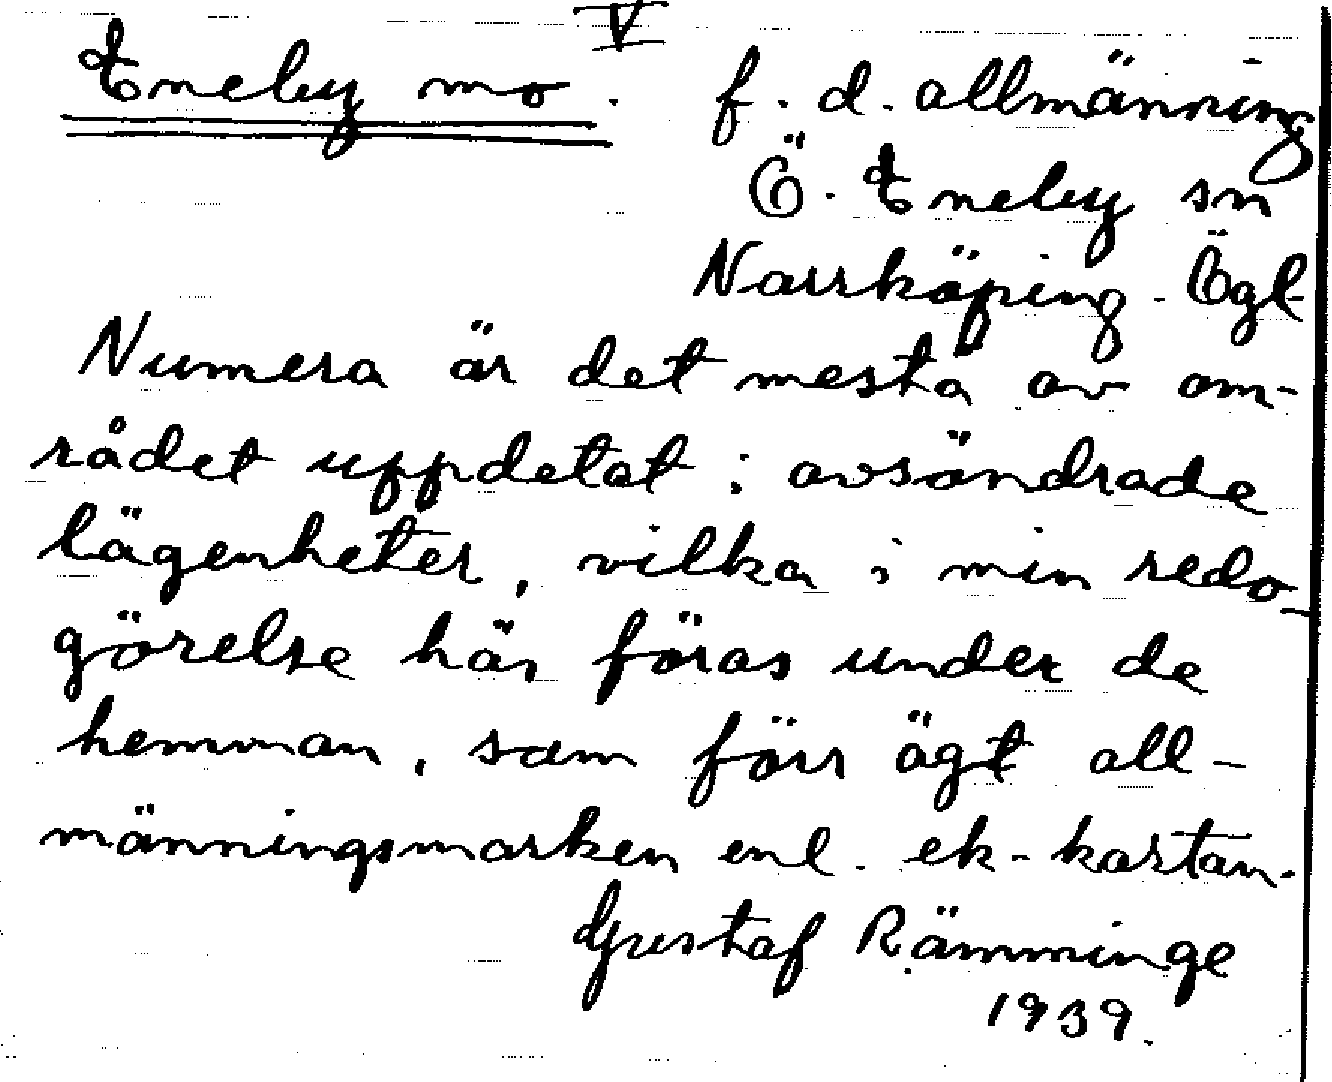 V
Eneby mo. f. d. allmänning
Ö. Eneby sn
Norrköping. Ögl.
Numera är det mesta av om-
rådet uppdelat i avsöndrade
lägenheter, vilka i min redo-
görelse här föras under de
hemman, som förr ägt all-
männingsmarken enl. ek-kartan.
Gustaf Rämminge
1939.